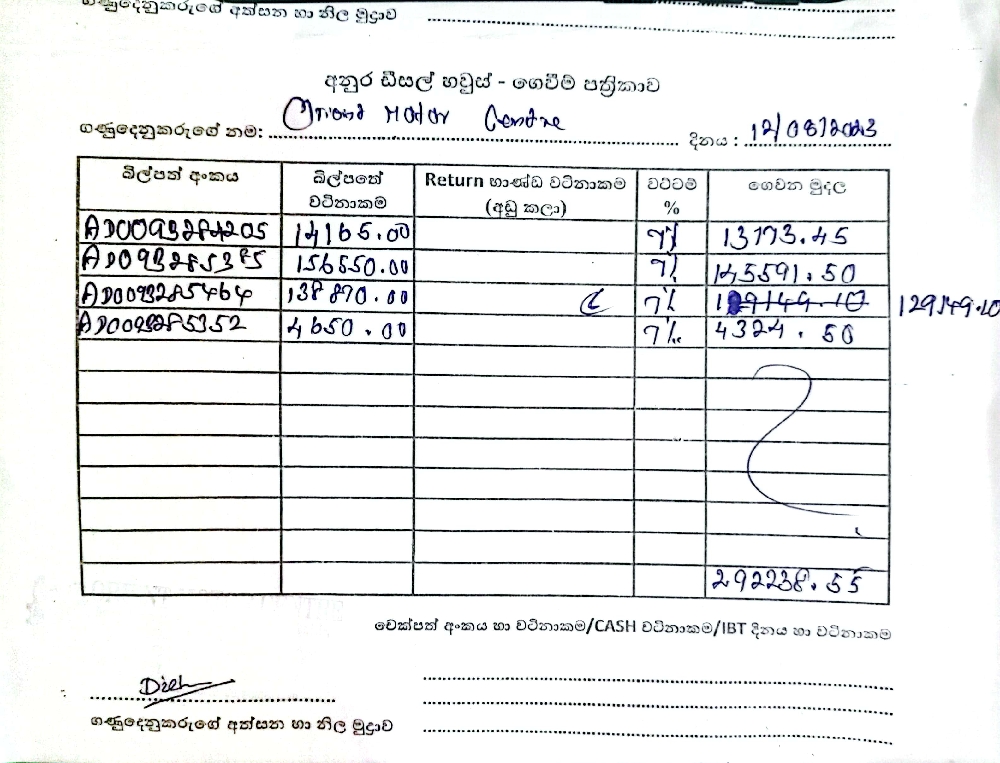 ගණුදෙනුකරුගේ අත්සන හා නිල මුද්‍රාව
අනුර ඩීසල් හවුස් - ගෙවීම් පත්‍රිකාව
ගණුදෙනුකරුගේ නම: Orient Motor Centre දිනය : 12/08/2023
බිල්පත් අංකය බිල්පතේ වටිනාකම Return භාණ්ඩ වටිනාකම (අඩු කලා) වට්ටම් % ගෙවන මුදල
AD0093284205 14165.00 7% 13173.45
156550.00 7% 145591.50
AD0093285464 138870.00 7% 129149.10 129149.10
AD0093285352 4650.00 7% 4324.50
292238.55
චෙක්පත් අංකය හා වටිනාකම/CASH වටිනාකම/IBT දිනය හා වටිනාකම
ගණුදෙනුකරුගේ අත්සන හා නිල මුද්‍රාව